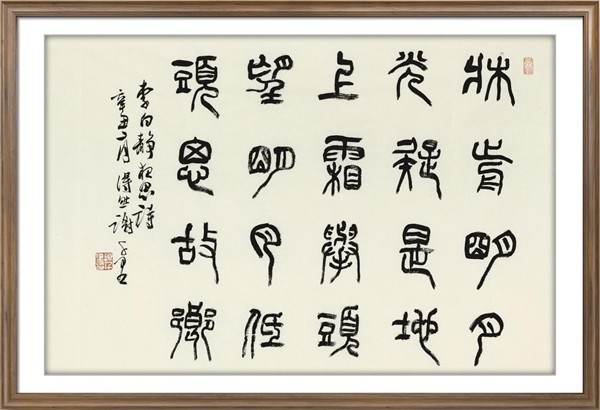 牀前明月
光疑是地
上霜舉頭
望明月低
頭思故鄉
李白靜夜思詩
辛丑 月 謝